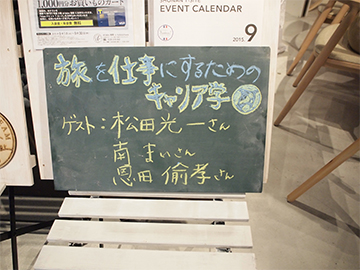 1,000円分お買いものカード
EVENT CALENDAR
2015.
9
旅を仕事にするための
キャリア学
ゲスト：松田光一さん
南まいさん
恩田倫孝さん